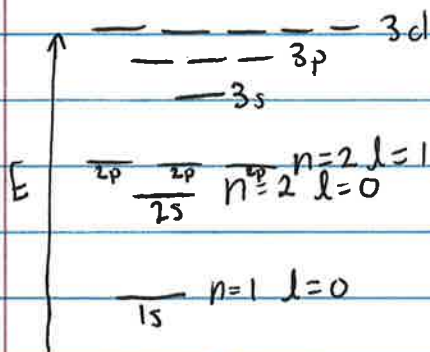 3d
3p
3s
E
2p 2p 2p n=2 l=1
2s n=2 l=0
1s n=1 l=0